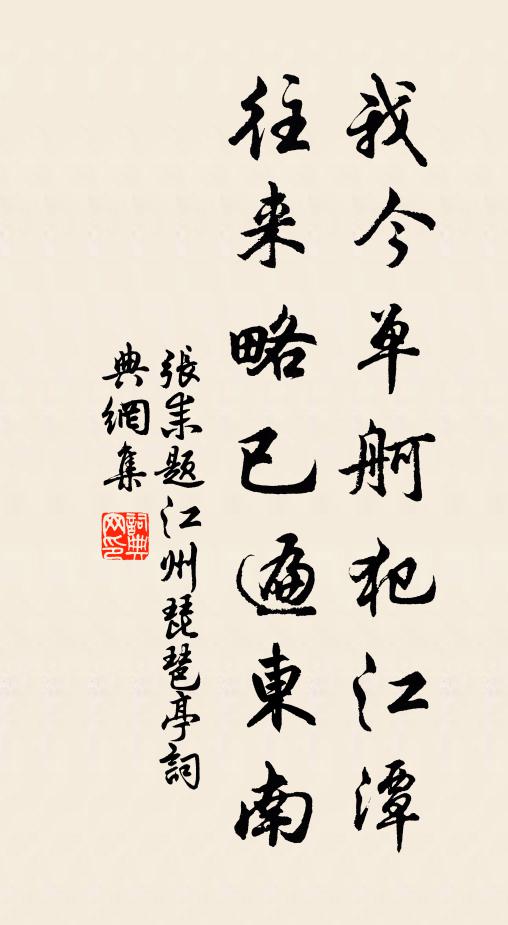 我今单舸犯江潭
往来略已遍東南
張耒题江州琵琶亭詞
典網集
詞典
网印